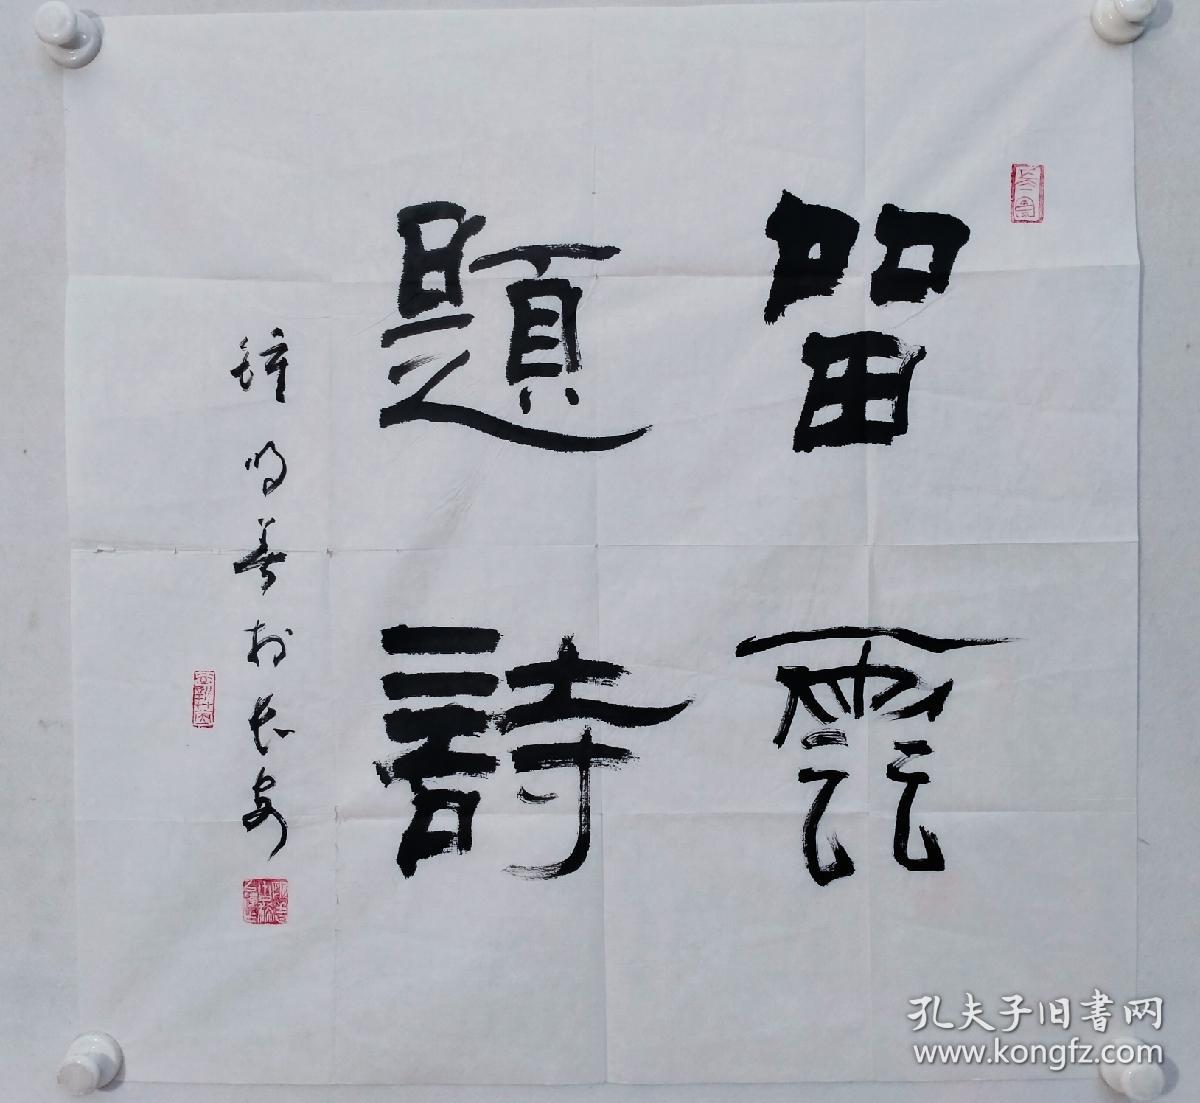 留雲
題詩
鍾明善於长安
孔夫子旧書网
www.kongfz.com